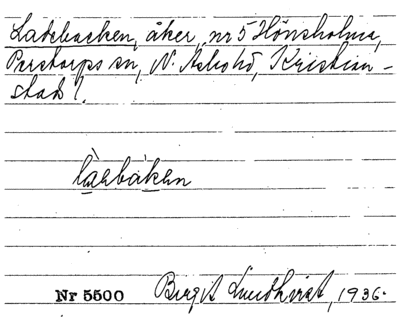 Ladebacken, åker, nr 5 Hönsholma,
Perstorps sn, N. Åsbo hd, Kristian-
stads l.
làebákен
Nr 5500 Birgit Lundkvist, 1936.